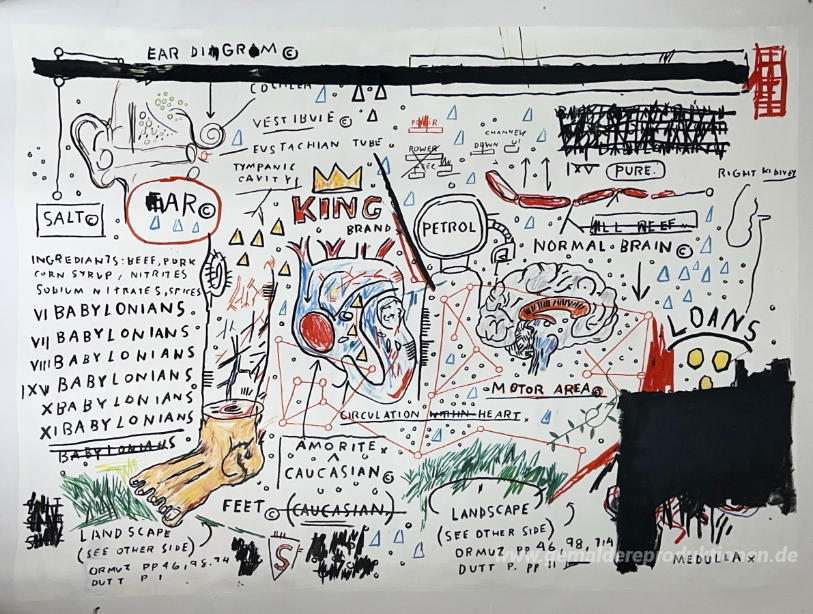 EAR DIAGRAM ©
COCHLEA
VESTIBULE ©
EUSTACHIAN TUBE
TYMPANIC
CAVITY
EAR ©
SALT ©
POWER
POWER
DOWN
CHANNEL
PURE.
RIGHT KIDNEY
KING
BRAND
PETROL
ALL BEEF
NORMAL BRAIN ©
INGREDIANTS: BEEF, PORK
CORN SYRUP, NITRITES
SODIUM NITRATES, SPICES
VI BABYLONIANS.
VII BABYLONIANS
VIII BABYLONIANS
IXV BABYLONIANS.
X BABYLONIANS.
XI BABYLONIANS
BABYLONIANS
LOANS
MOTOR AREA ©
CIRCULATION WITHIN HEART.
AMORITE x
CAUCASIAN ©
FEET © (CAUCASIAN)
LANDSCAPE
(SEE OTHER SIDE)
ORMUZ PP 46, 98, 74
DUTT P 1
S
LANDSCAPE
(SEE OTHER SIDE)
ORMUZ PP 46, 98, 714
DUTT P. PP 11
MEDULLA x
www.gemaldereproduktionen.de